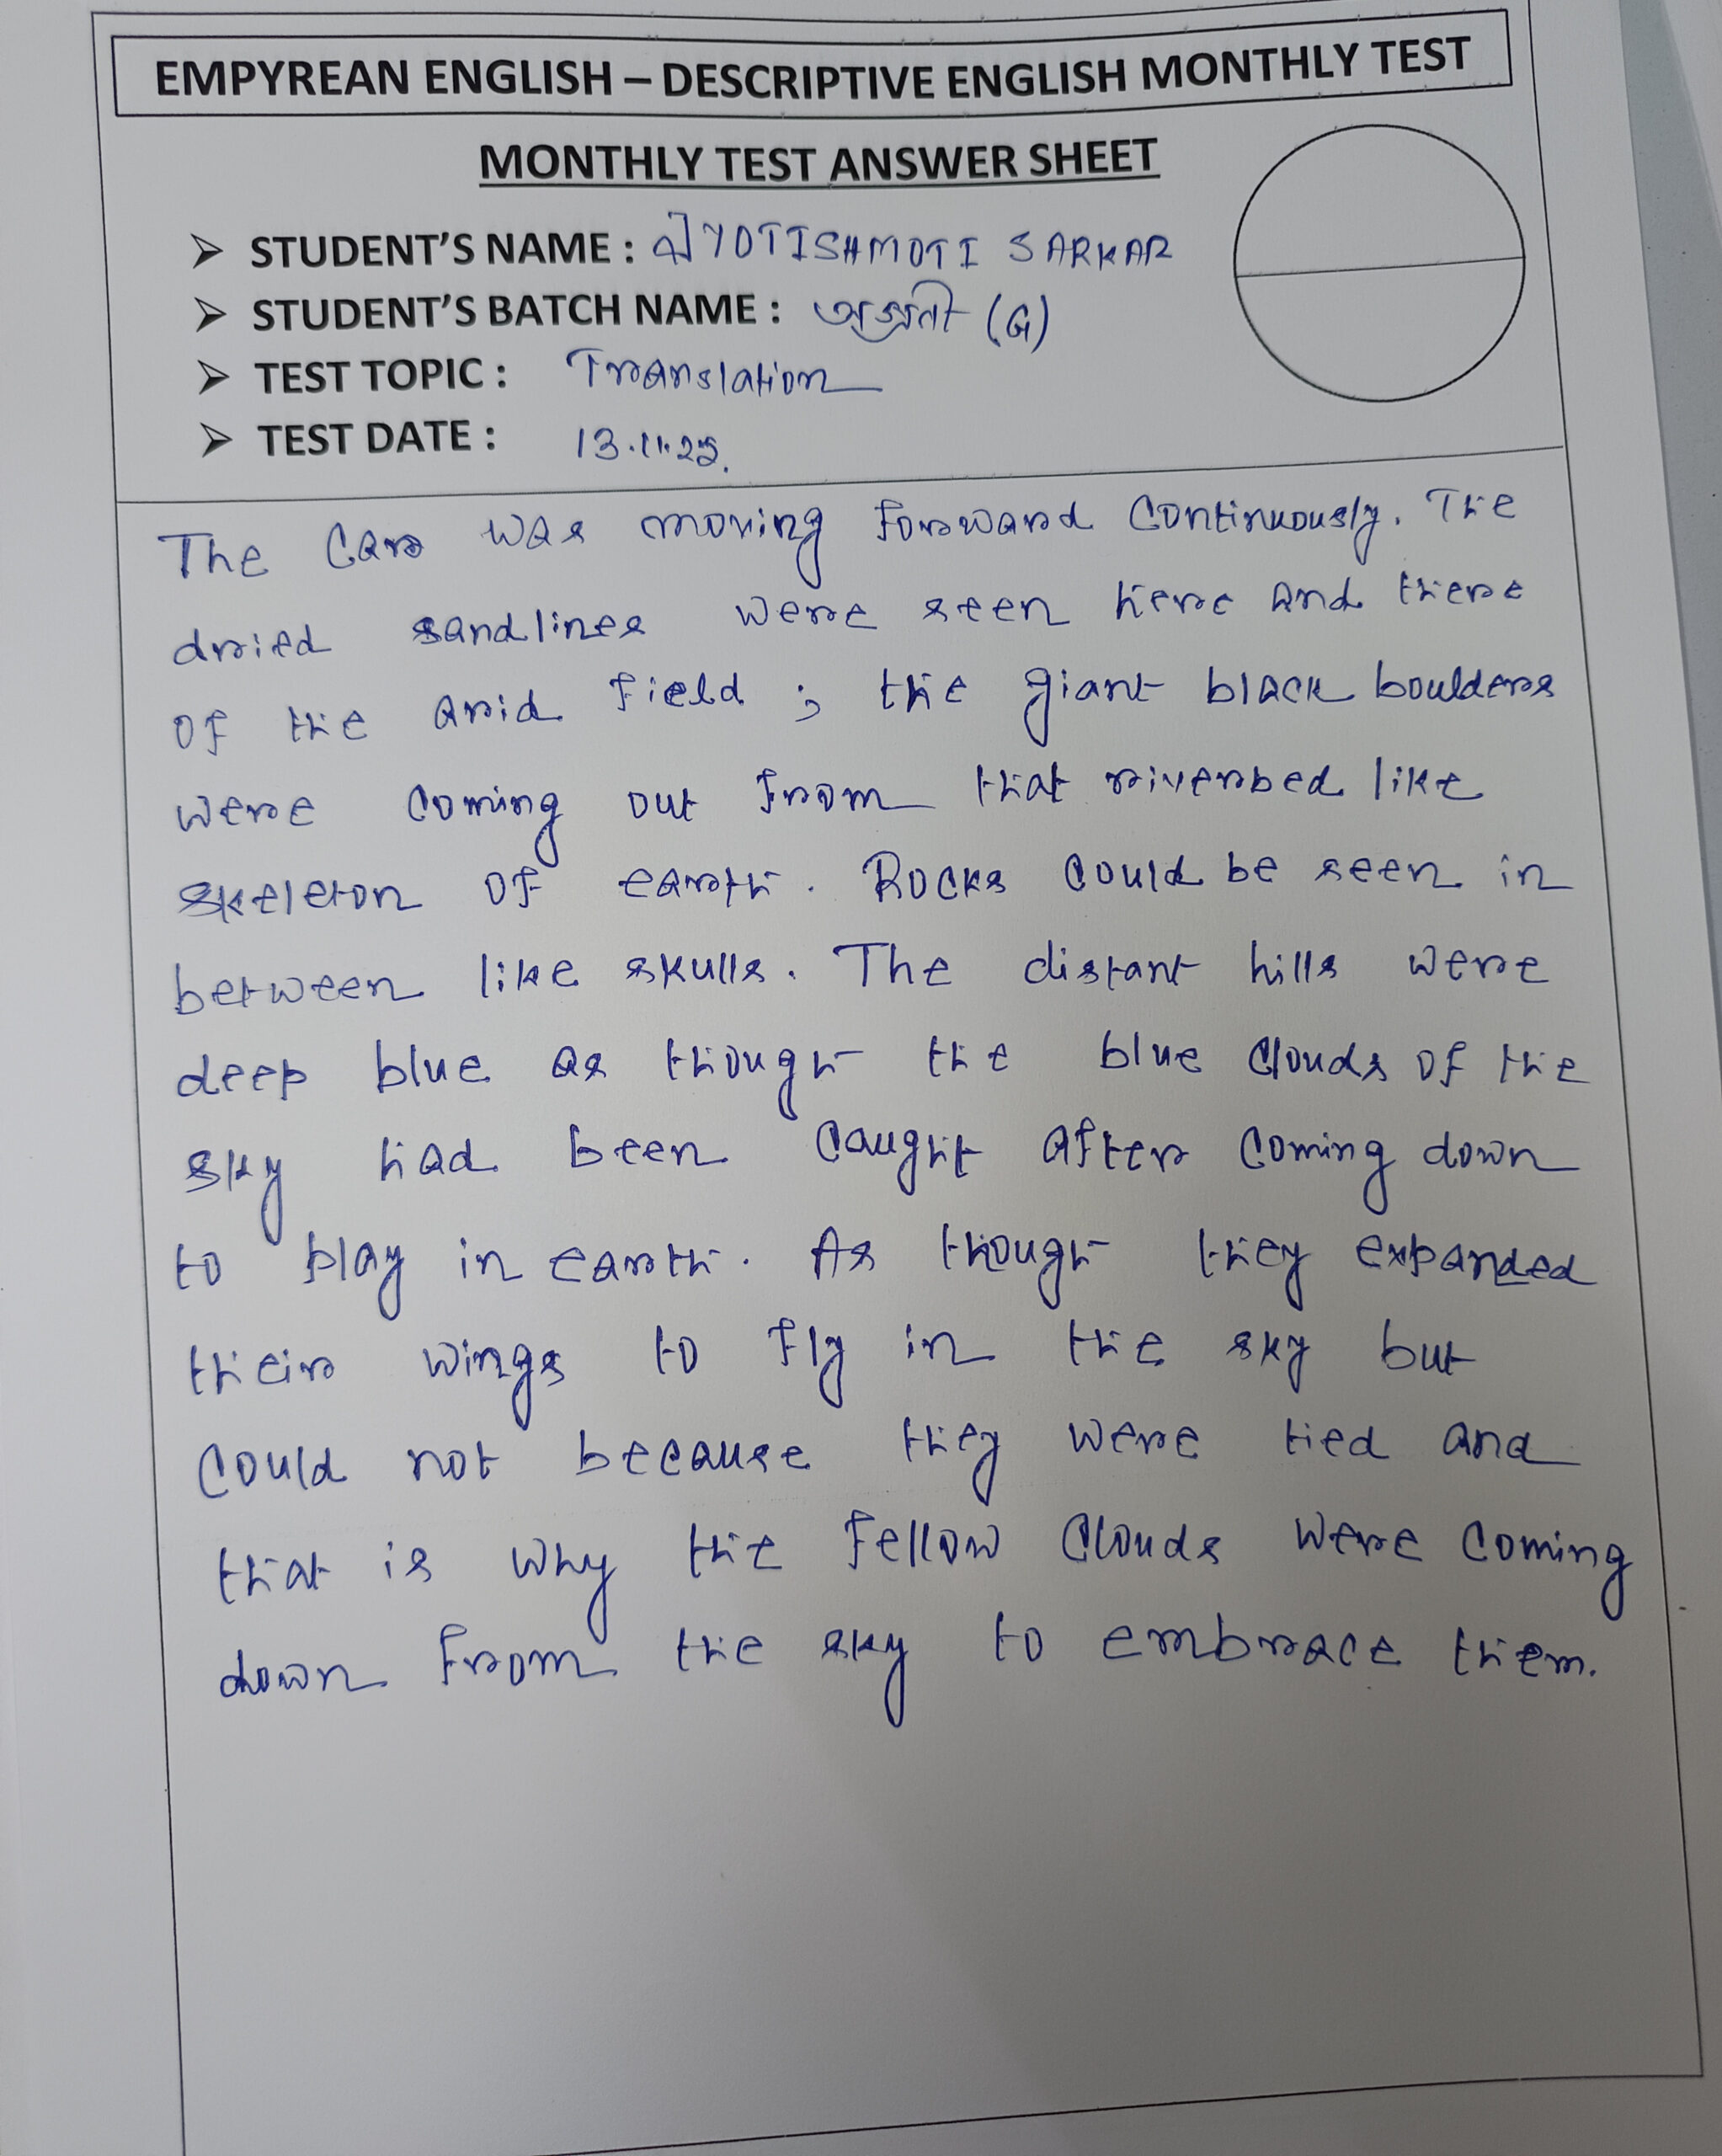 EMPYREAN ENGLISH – DESCRIPTIVE ENGLISH MONTHLY TEST
MONTHLY TEST ANSWER SHEET
➢ STUDENT'S NAME : JYOTISHMOTI SARKAR
➢ STUDENT'S BATCH NAME : (G)
➢ TEST TOPIC : Translation
➢ TEST DATE : 13.11.25.
The Car was moving forward Continuously. The
dried sandlines were seen here and there
of the arid field ; the giant black boulders
were coming out from that riverbed like
skeleton of earth. Rocks could be seen in
between like skulls. The distant hills were
deep blue as though the blue clouds of the
sky had been caught after coming down
to play in earth. As though they expanded
their wings to fly in the sky but
could not because they were tied and
that is why the fellow clouds were coming
down from the sky to embrace them.